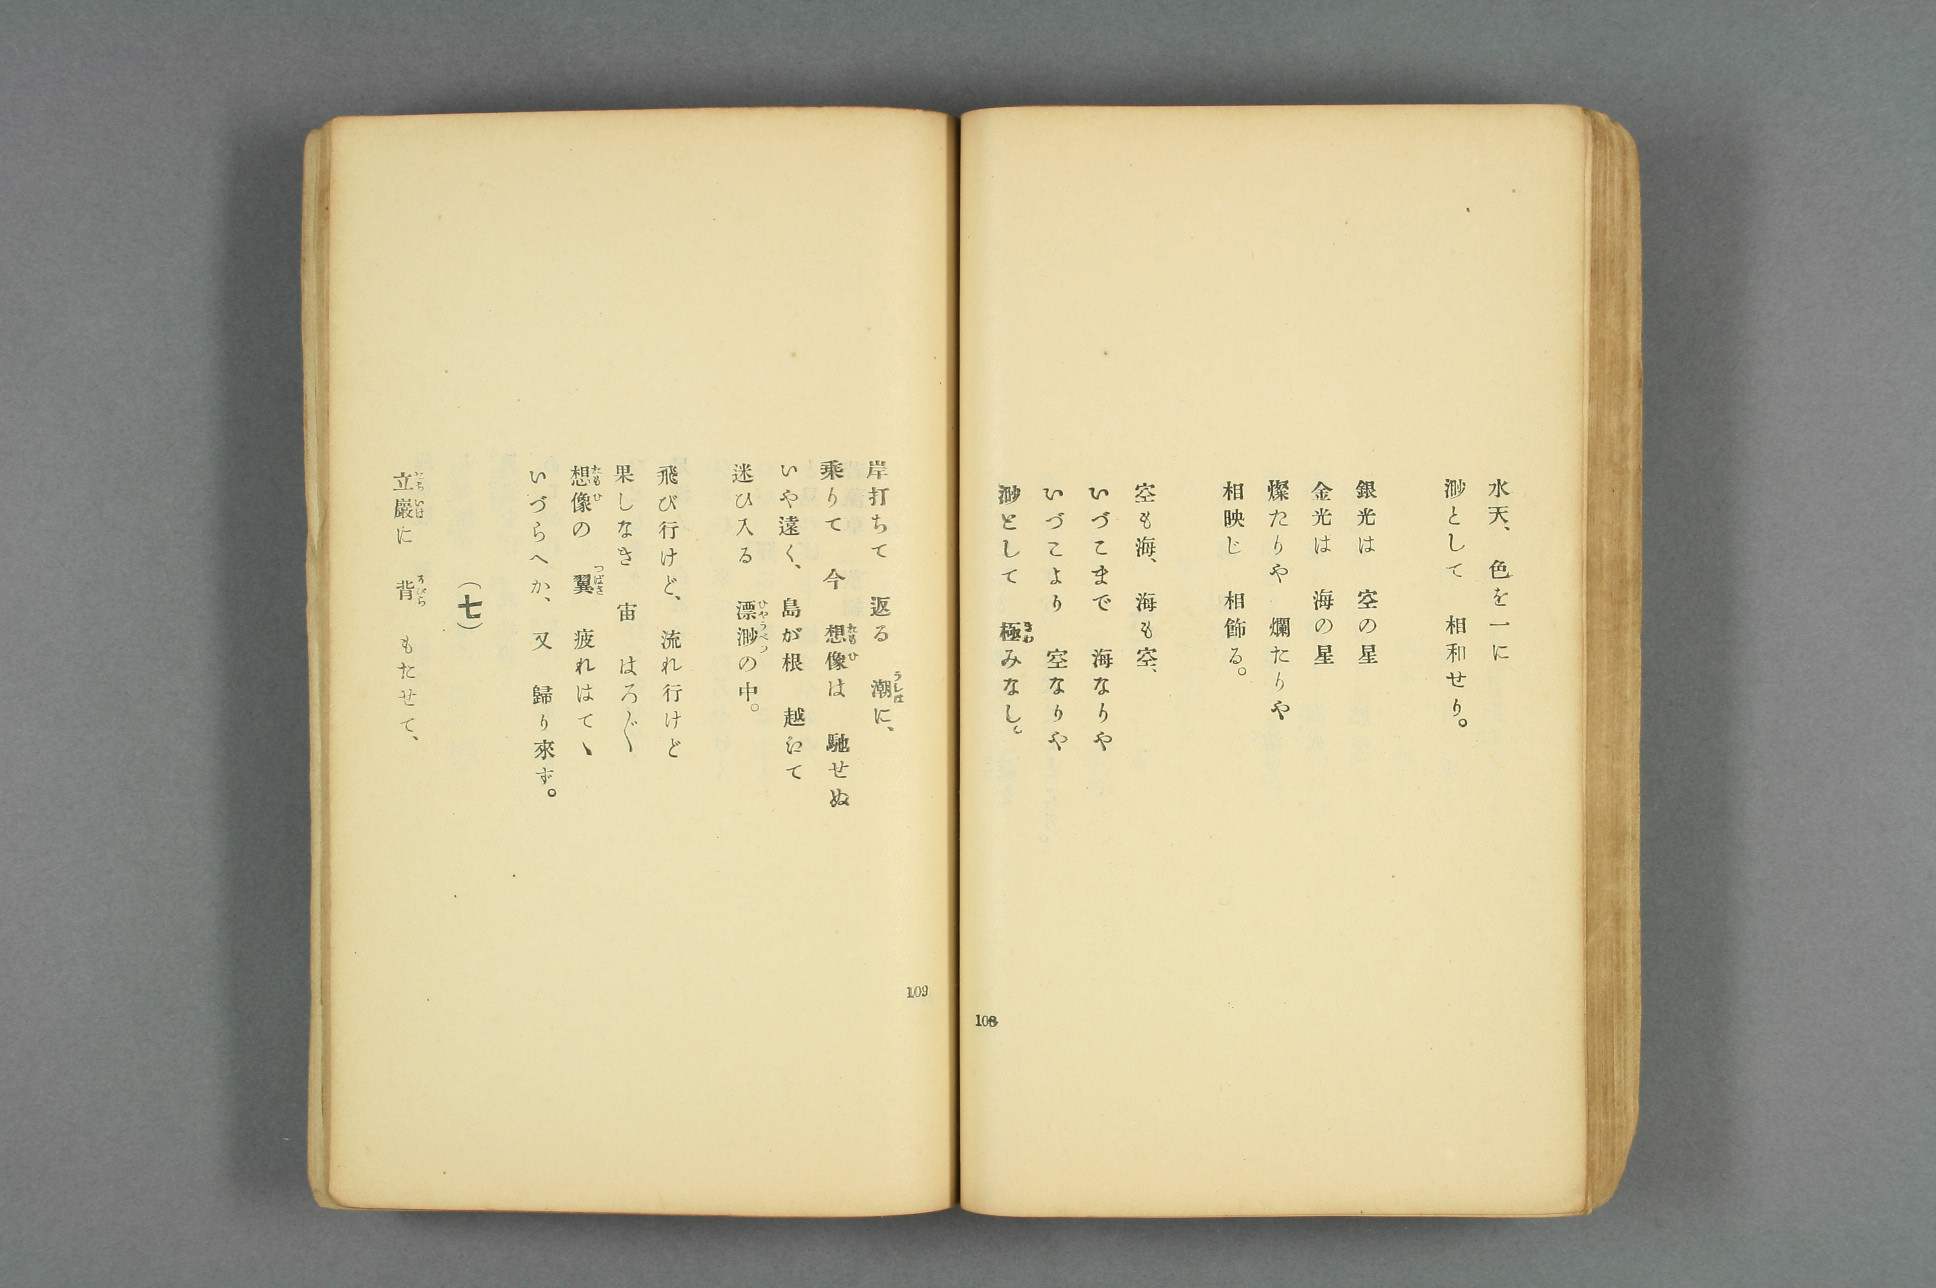 水天、色を一に
渺として 相和せり。
銀光は 空の星
金光は 海の星
燦たりや 爛たりや
相映じ 相飾る。
空も海、海も空、
いづこまで 海なりや
いづこより 空なりや
渺として 極みなし。
108
岸打ちて 返る 潮に、
乘りて 今 想像は 馳せぬ
いや遠く、島が根 越𛀁て
迷ひ入る 漂渺の中。
飛び行けど、流れ行けど
果しなき 宙 はろ〴〵
想像の 翼 疲れはてヽ
いづらへか、又 歸り來ず。
(七)
立巖に 背 もたせて、
109